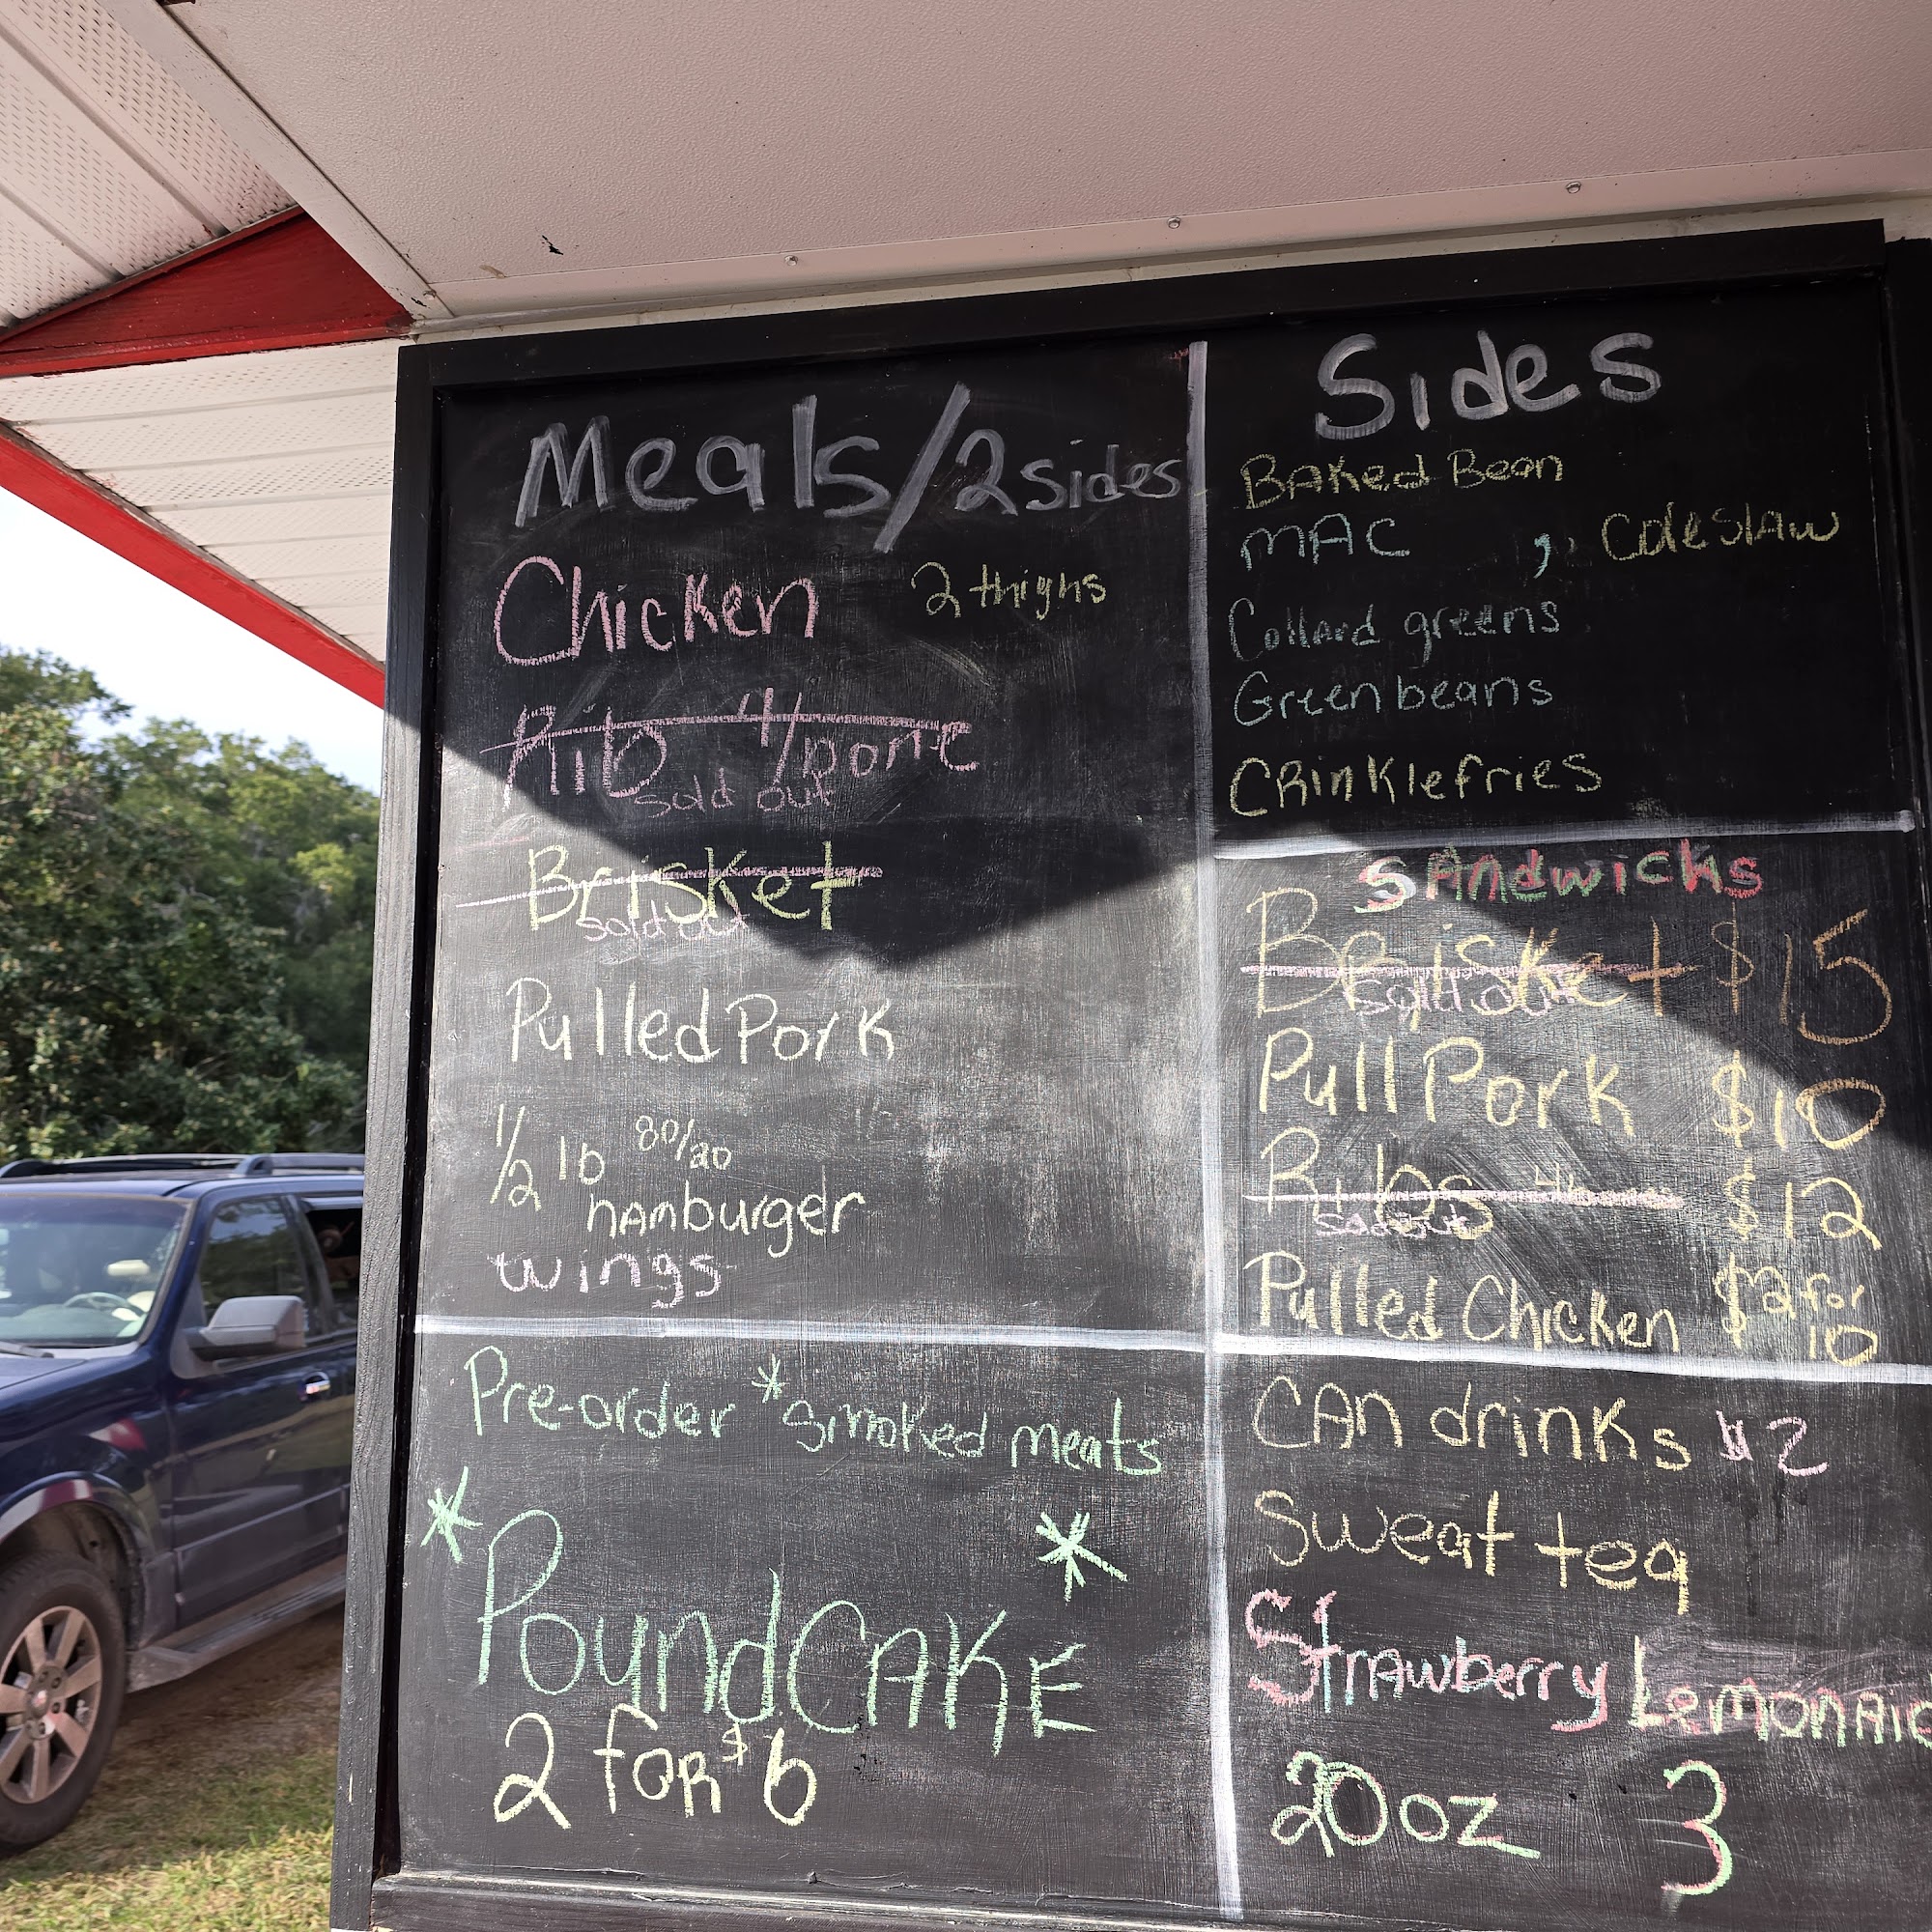 Meals/2 sides
Chicken 2 thighs
Rib 4/bone
sold out
Brisket
sold out
Pulled Pork
1/2 lb 80/20
hamburger
wings
Pre-order *smoked meats
* *
PoundCAKE
2 foR $6
Sides
BAKed Bean
MAC , ColeslAw
CollArd greens
Green beans
CRinkle fries
SAndwichs
BRisket $15
sold out
Pull Pork $10
Ribs 4 $12
sold out
Pulled Chicken $2 for
10
CAn drinks $2
Sweat tea
StrAwberry
20oz 3